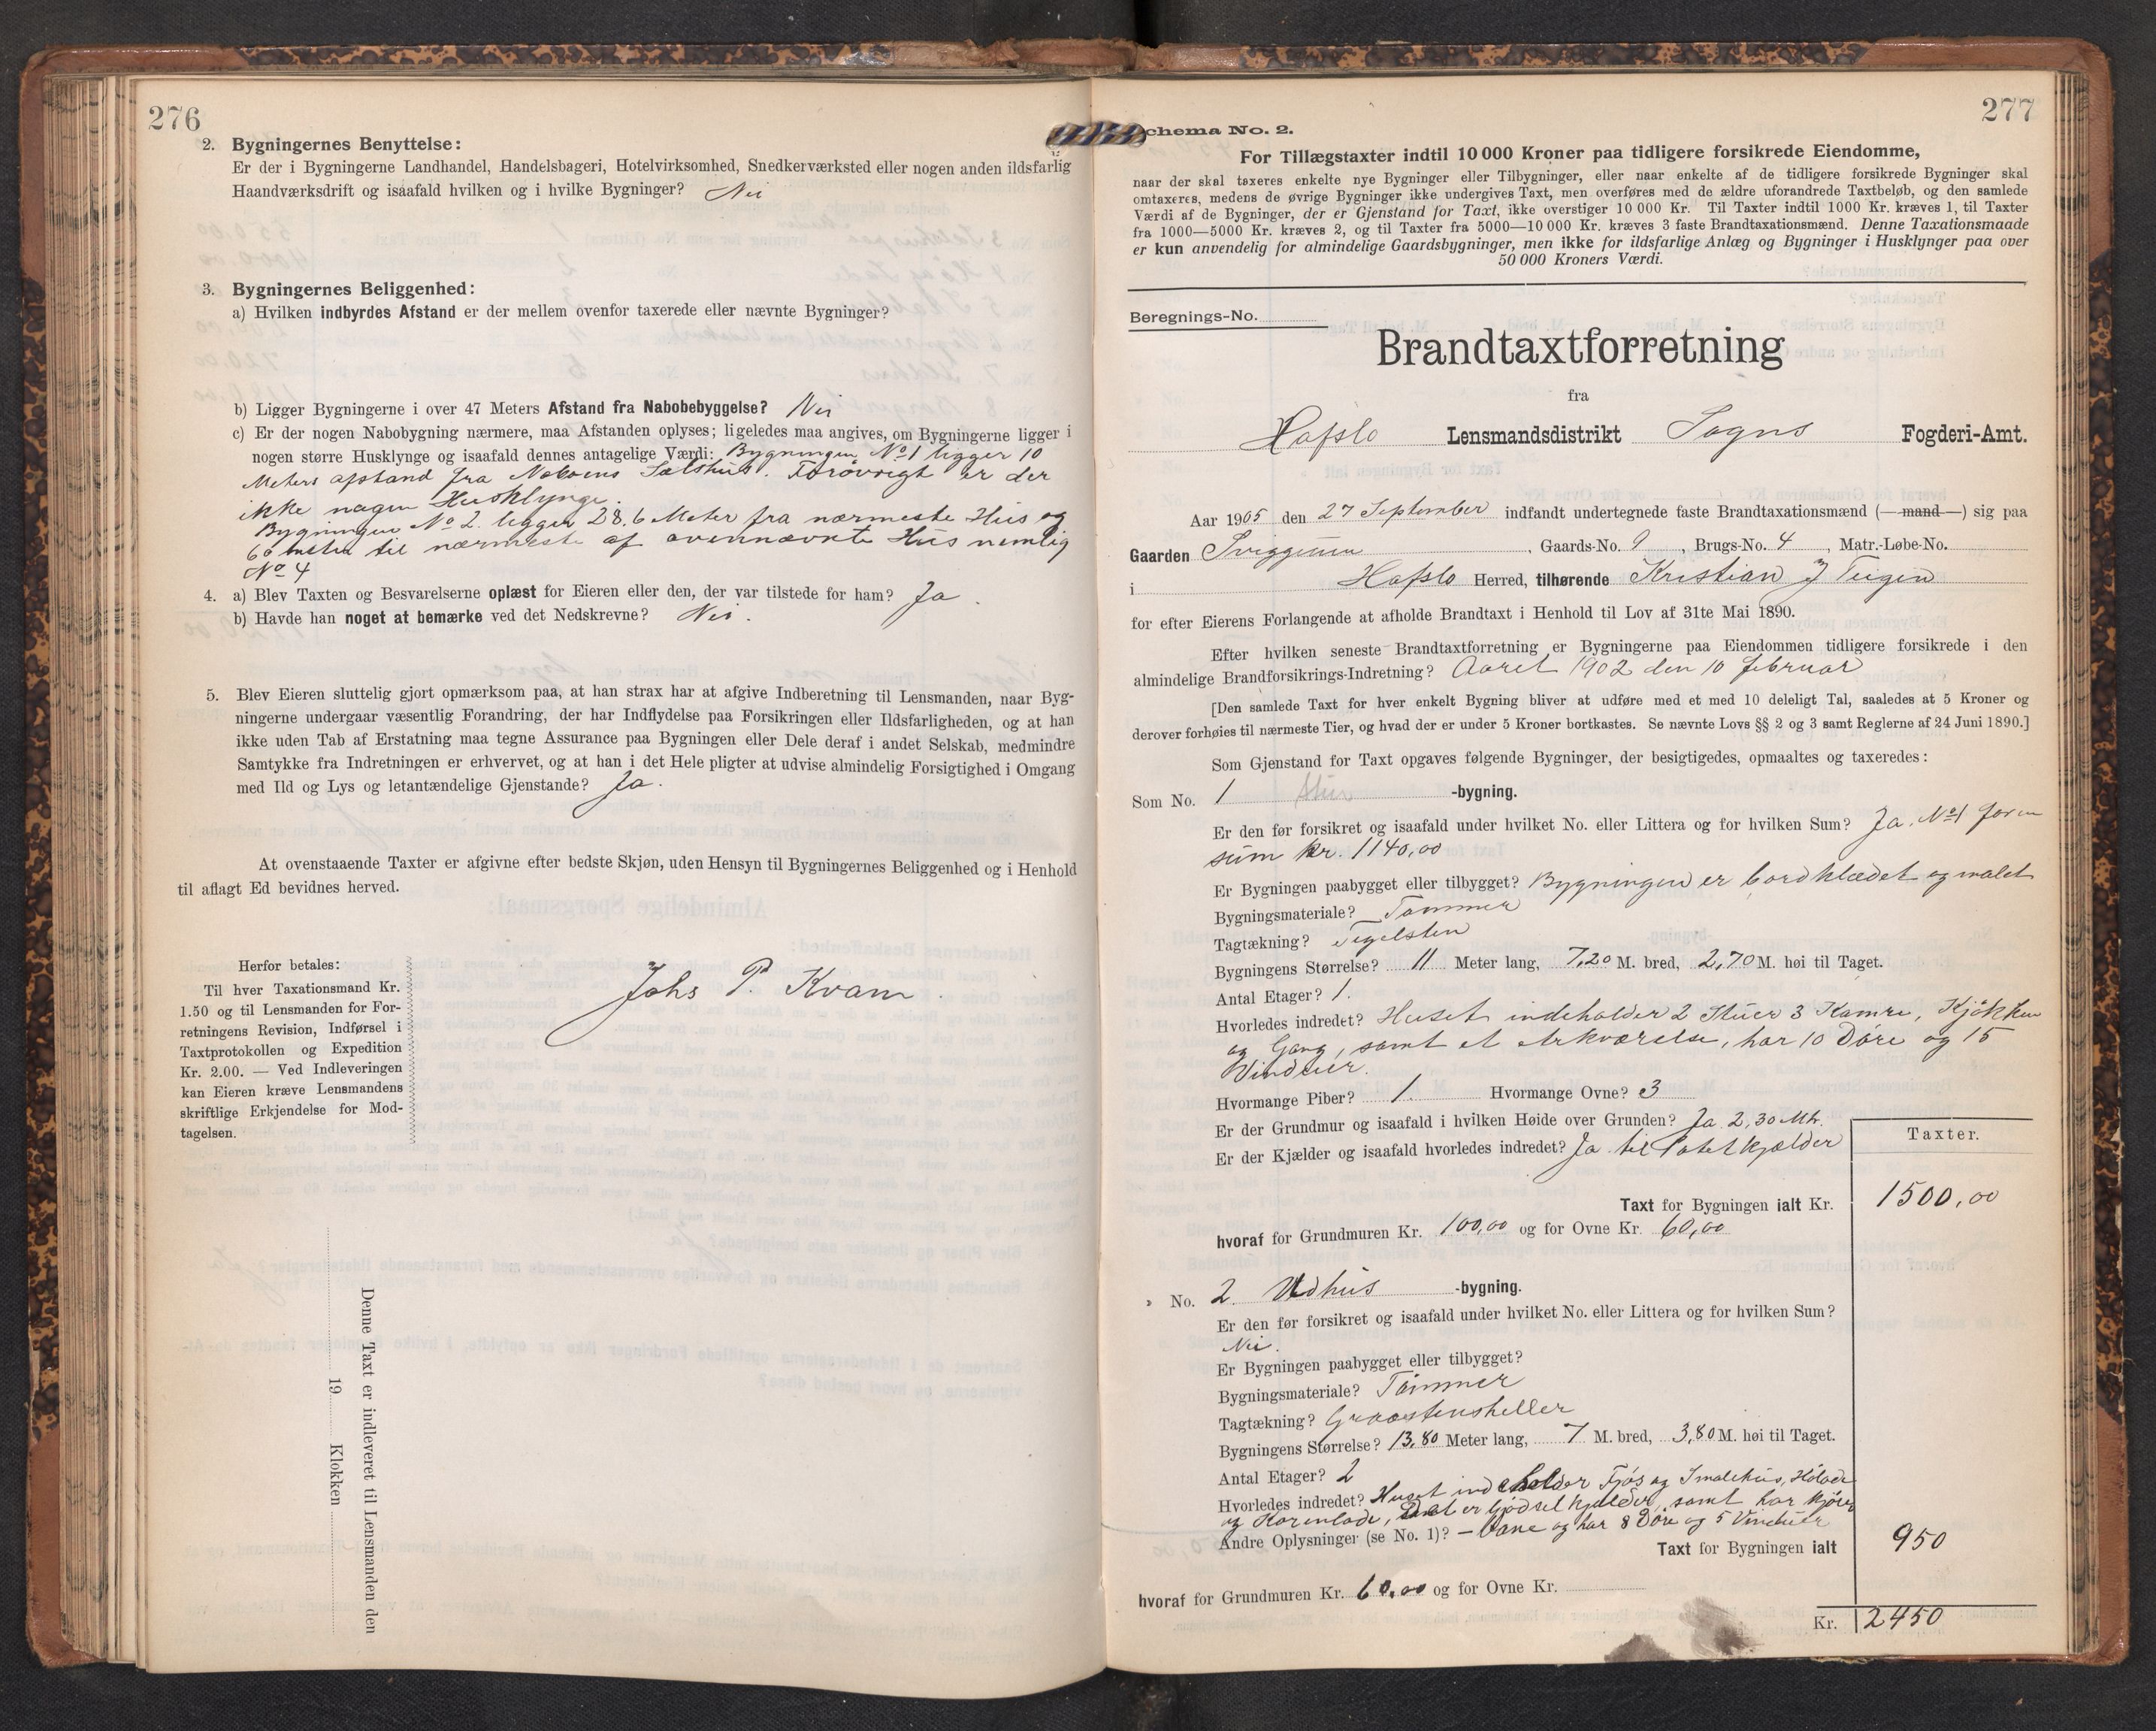 276
2. Bygningernes Benyttelse:
Er der i Bygningerne Landhandel, Handelsbageri, Hotelvirksomhed, Snedkerværksted eller nogen anden ildsfarlig
Haandværksdrift og isaafald hvilken og i hvilke Bygninger? Nei
3. Bygningernes Beliggenhed:
a) Hvilken indbyrdes Afstand er der mellem ovenfor taxerede eller nævnte Bygninger?
b) Ligger Bygningerne i over 47 Meters Afstand fra Nabobebyggelse? Nei
c) Er der nogen Nabobygning nærmere, maa Afstanden oplyses; ligeledes maa angives, om Bygningerne ligger i
nogen større Husklynge og isaafald dennes antagelige Værdi: Bygningen No 1 ligger 10
Meters afstand fra Naboens Sælshus. Forøvrigt er der
ikke nogen Husklynge.
Bygningen No 2. ligger 28.6 Meter fra nærmeste Hus og
60 meter til nærmeste af ovennævnte Hus nemlig
No 4
4. a) Blev Taxten og Besvarelserne oplæst for Eieren eller den, der var tilstede for ham? Ja.
b) Havde han noget at bemærke ved det Nedskrevne? Nei.
5. Blev Eieren sluttelig gjort opmærksom paa, at han strax har at afgive Indberetning til Lensmanden, naar Byg-
ningerne undergaar væsentlig Forandring, der har Indflydelse paa Forsikringen eller Ildsfarligheden, og at han
ikke uden Tab af Erstatning maa tegne Assurance paa Bygningen eller Dele deraf i andet Selskab, medmindre
Samtykke fra Indretningen er erhvervet, og at han i det Hele pligter at udvise almindelig Forsigtighed i Omgang
med Ild og Lys og letantændelige Gjenstande? Ja.
At ovenstaaende Taxter er afgivne efter bedste Skjøn, uden Hensyn til Bygningernes Beliggenhed og i Henhold
til aflagt Ed bevidnes herved.
Johs P. Kvam
Herfor betales:
Til hver Taxationsmand Kr.
1.50 og til Lensmanden for For-
retningens Revision, Indførsel i
Taxtprotokollen og Expedition
Kr. 2.00. — Ved Indleveringen
kan Eieren kræve Lensmandens
skriftlige Erkjendelse for Mod-
tagelsen.
Denne Taxt er indleveret til Lensmanden den
19 Klokken
277
chema No. 2.
For Tillægstaxter indtil 10 000 Kroner paa tidligere forsikrede Eiendomme,
naar der skal taxeres enkelte nye Bygninger eller Tilbygninger, eller naar enkelte af de tidligere forsikrede Bygninger skal
omtaxeres, medens de øvrige Bygninger ikke undergives Taxt, men overføres med de ældre uforandrede Taxtbeløb, og den samlede
Værdi af de Bygninger, der er Gjenstand for Taxt, ikke overstiger 10 000 Kr. Til Taxter indtil 1000 Kr. kræves 1, til Taxter
fra 1000—5000 Kr. kræves 2, og til Taxter fra 5000—10 000 Kr. kræves 3 faste Brandtaxationsmænd. Denne Taxationsmaade
er kun anvendelig for almindelige Gaardsbygninger, men ikke for ildsfarlige Anlæg og Bygninger i Husklynger paa over
50 000 Kroners Værdi.
Beregnings-No.
Brandtaxtforretning
fra
Hafslo Lensmandsdistrikt Sogns Fogderi-Amt.
Aar 1905 den 27 September indfandt undertegnede faste Brandtaxationsmænd (—mand—) sig paa
Gaarden Sviggum, Gaards-No. 9, Brugs-No. 4, Matr.-Løbe-No.
i Hafslo Herred, tilhørende Kristian J Teigen
for efter Eierens Forlangende at afholde Brandtaxt i Henhold til Lov af 31te Mai 1890.
Efter hvilken seneste Brandtaxtforretning er Bygningerne paa Eiendommen tidligere forsikrede i den
almindelige Brandforsikrings-Indretning? Aaret 1902 den 10 februar
[Den samlede Taxt for hver enkelt Bygning bliver at udføre med et med 10 deleligt Tal, saaledes at 5 Kroner og
derover forhøies til nærmeste Tier, og hvad der er under 5 Kroner bortkastes. Se nævnte Lovs §§ 2 og 3 samt Reglerne af 24 Juni 1890.]
Som Gjenstand for Taxt opgaves følgende Bygninger, der besigtigedes, opmaaltes og taxeredes:
Som No. 1 Stue -bygning.
Er den før forsikret og isaafald under hvilket No. eller Littera og for hvilken Sum? Ja. No 1 for en
sum Kr. 1140,00
Er Bygningen paabygget eller tilbygget? Bygningen er bordklædet og malet
Bygningsmateriale? Tømmer
Tagtækning? Tegelsten
Bygningens Størrelse? 11 Meter lang, 7,20 M. bred, 2,70 M. høi til Taget.
Antal Etager? 1.
Hvorledes indredet? Huset indeholder 2 Stuer 3 Kamre, Kjøkken
og Gang, samt et Arkværelse, har 10 Døre og 15
Vinduer.
Hvormange Piber? 1. Hvormange Ovne? 3
Er der Grundmur og isaafald i hvilken Høide over Grunden? Ja 2,30 Mtr.
Er der Kjælder og isaafald hvorledes indredet? Ja til Potetkjælder
Taxter.
Taxt for Bygningen ialt Kr. 1500,00
hvoraf for Grundmuren Kr. 100,00 og for Ovne Kr. 60,00
" No. 2. Udhus -bygning.
Er den før forsikret og isaafald under hvilket No. eller Littera og for hvilken Sum?
Nei.
Er Bygningen paabygget eller tilbygget?
Bygningsmateriale? Tømmer
Tagtækning? Graastensheller
Bygningens Størrelse? 13,80 Meter lang, 7 M. bred, 3,80 M. høi til Taget.
Antal Etager? 2
Hvorledes indredet? Huset indeholder Fjøs og Smalehus, Hølade
og Kornlade, Det er Gjødselkjælder, samt har kjøre
Andre Oplysninger (se No. 1)? — bane og har 8 Døre og 5 Vinduer
Taxt for Bygningen ialt 950
hvoraf for Grundmuren Kr. 60,00 og for Ovne Kr.
Kr. 2450